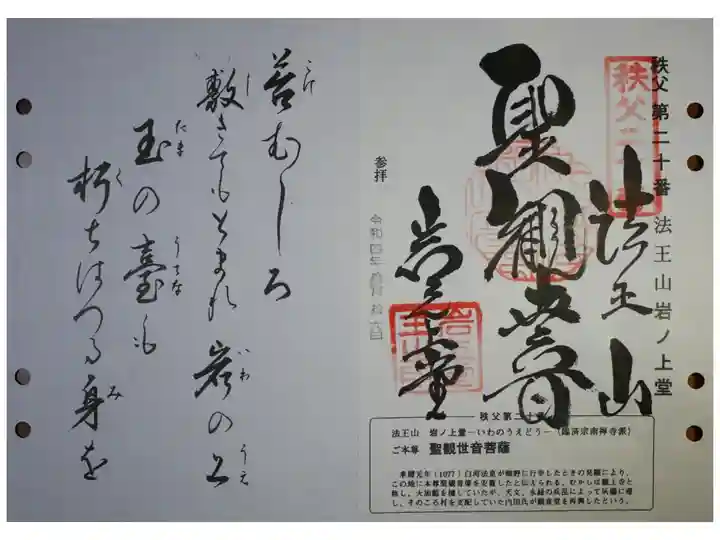 秩父 第二十番 法王山岩ノ上堂
秩父二十番
法王山
聖観世音
岩之上堂
参拝
令和四年
秩父第二十番
法王山 岩ノ上堂―いわのうえどう―(臨済宗南禅寺派)
ご本尊 聖観世音菩薩
(1077)白河法皇が熊野に行幸したときの
この地に本尊聖観音像を安置したと伝えられる。むかしは巌上寺と
称し、大伽藍を擁していたが、天文、永禄の兵乱によって灰燼に帰
し、そのころ村を支配していた内田氏が観音堂を再興したという。
苔むしろ
こけ
敷きてもとまれ 岩の上
し いわ うえ
玉の臺も
たま うてな
朽ちはつる身を
く み